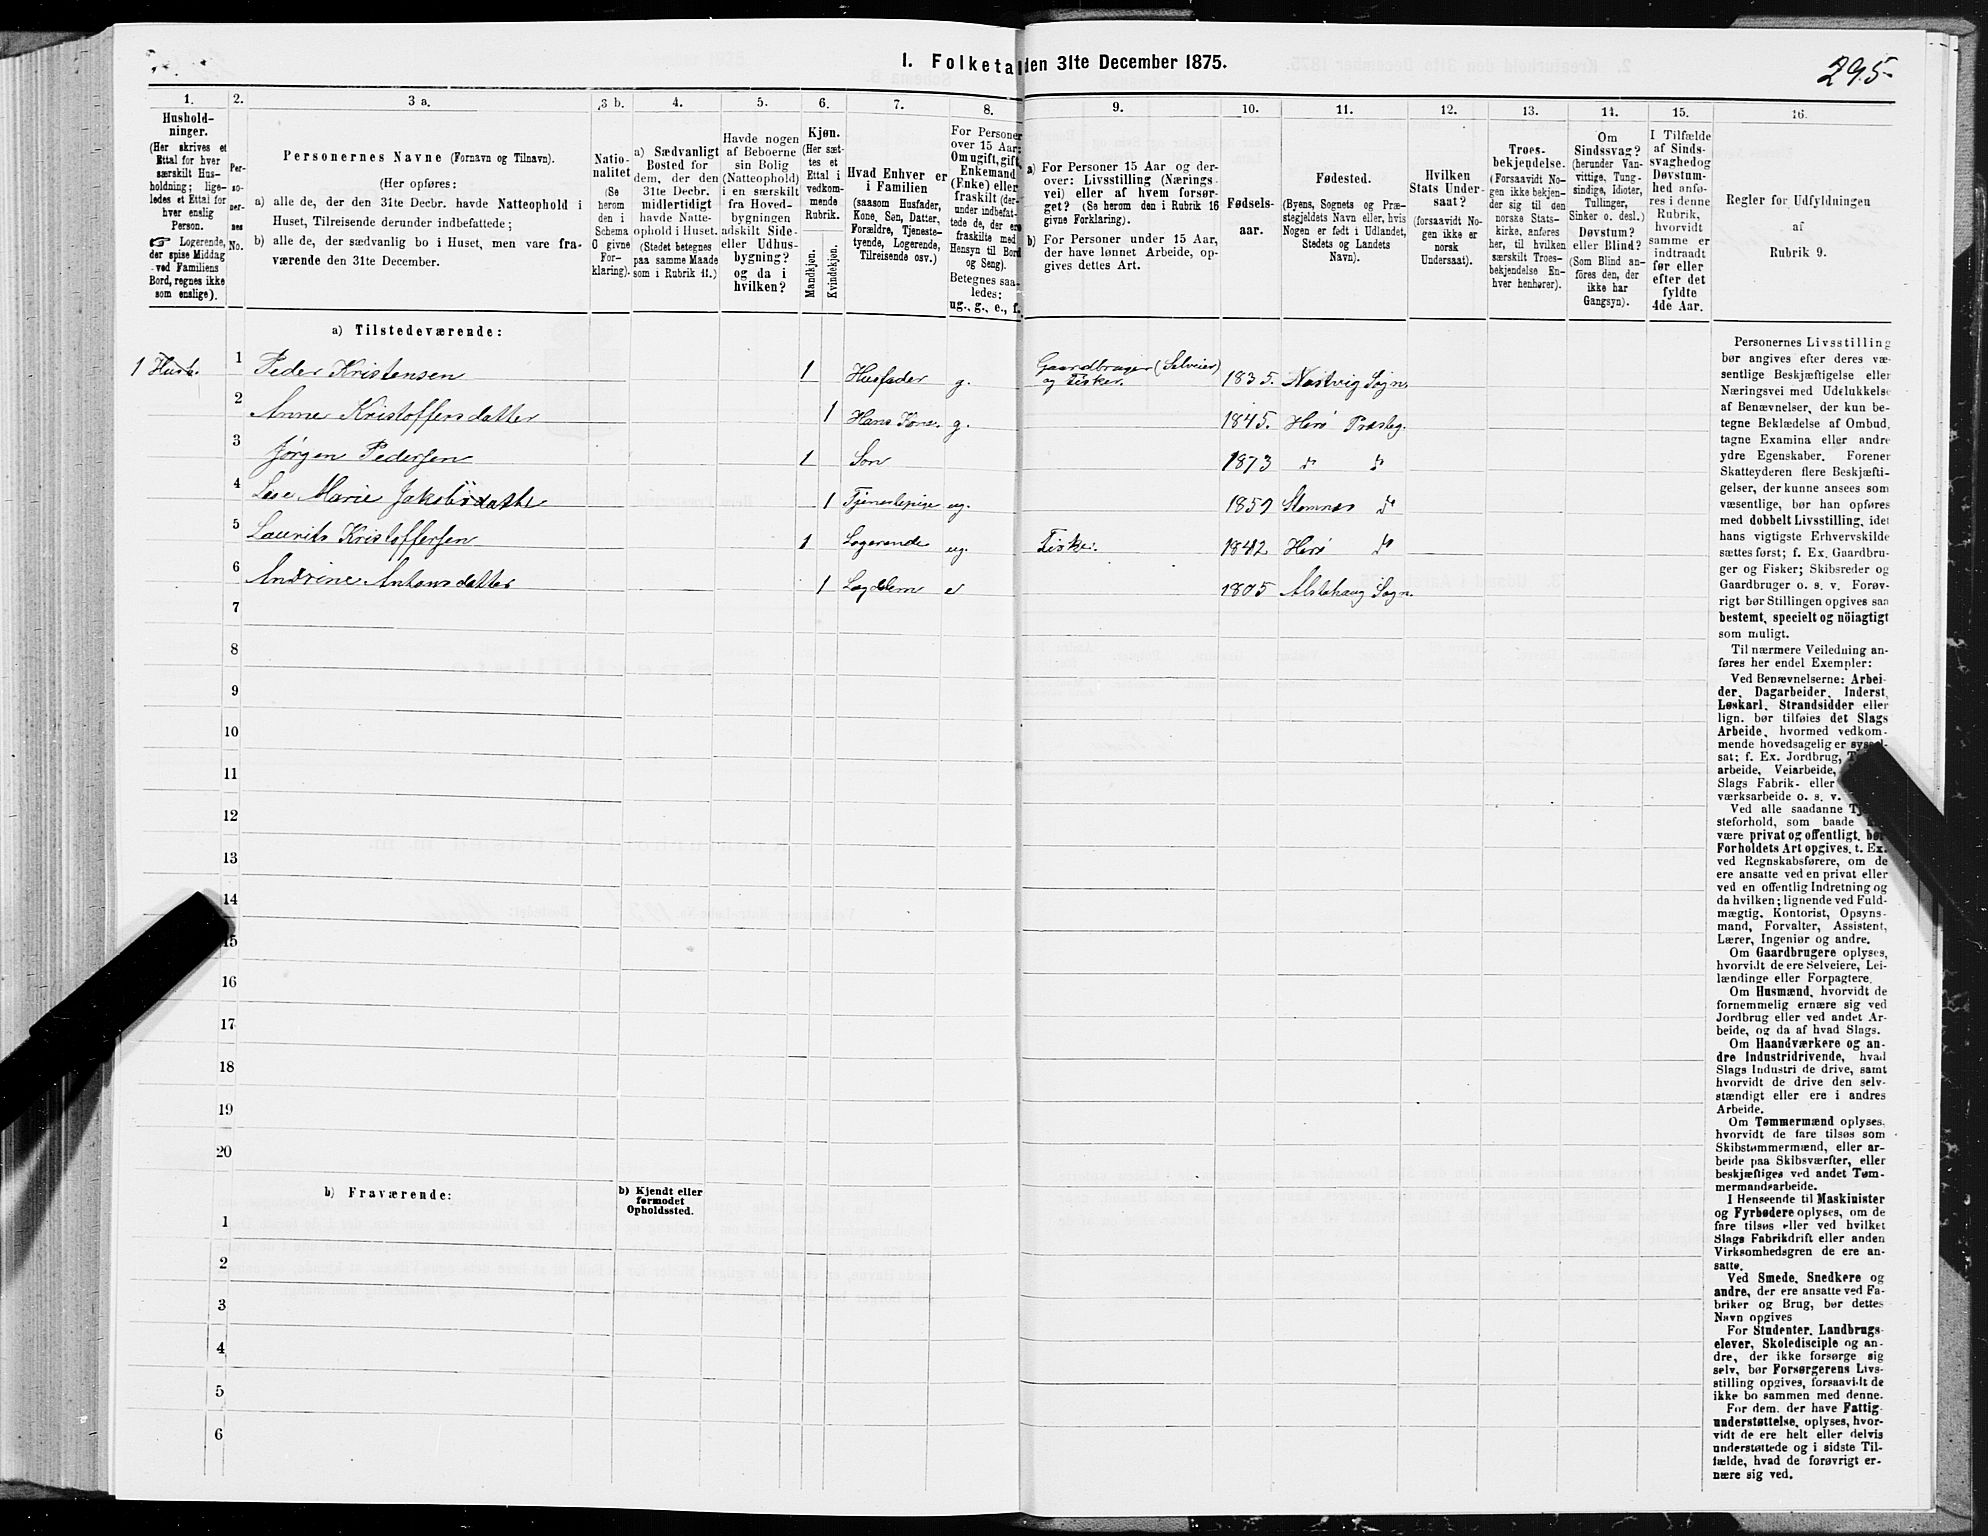 I. Folketal den 31te December 1875.
295.
1.
2.
3 a.
3 b.
4.
5.
6.
7.
8.
9.
10.
11.
12.
13.
14.
15.
16.
Hushold-
ninger.
(Her skrives et
Ettal for hver
særskilt Hus-
holdning; lige-
ledes et Ettal for
hver enslig
Person.
☞ Logerende,
der spise Middag
ved Familiens
Bord, regnes ikke
som enslige).
Per-
so-
ner-
nes
No.
Personernes Navne (Fornavn og Tilnavn).
(Her opføres:
a) alle de, der den 31te Decbr. havde Natteophold i
Huset, Tilreisende derunder indbefattede;
b) alle de, der sædvanlig bo i Huset, men vare fra-
værende den 31te December.
Natio-
nalitet
(Se
herom
den i
Schema
O givne
For-
klaring).
a) Sædvanligt
Bosted for
dem, der den
31te Decbr.
midlertidigt
havde Natte-
ophold i Huset.
(Stedet betegnes
paa samme Maade
som i Rubrik 11.)
Havde nogen
af Beboerne
sin Bolig
(Natteophold)
i en særskilt
fra Hoved-
bygningen
adskilt Side-
eller Udhus-
bygning?
og da i
hvilken?
Kjøn.
(Her sæt-
tes et
Ettal i
vedkom-
mende
Rubrik.
Mandkjøn.
Kvindekjøn.
Hvad Enhver er
i Familien
(saasom Husfader,
Kone, Søn, Datter,
Forældre, Tjeneste-
tyende, Logerende,
Tilreisende osv.)
For Personer
over 15 Aar:
Om ugift, gift,
Enkemand
(Enke) eller
fraskilt (der-
under indbefat-
tede de, der ere
fraskilte med
Hensyn til Bord
og Seng).
Betegnes saa-
ledes:
ug., g., e., f.
a) For Personer 15 Aar og der-
over: Livsstilling (Nærings-
vei) eller af hvem forsør-
get? (Se herom den i Rubrik 16
givne Forklaring).
b) For Personer under 15 Aar,
der have lønnet Arbeide, op-
gives dettes Art.
Fødsels-
aar.
Fødested.
(Byens, Sognets og Præ-
stegjeldets Navn eller, hvis
Nogen er født i Udlandet,
Stedets og Landets
Navn).
Hvilken
Stats Under-
saat?
(forsaavidt No-
gen ikke er
norsk
Undersaat).
Troes-
bekjendelse.
(Forsaavidt No-
gen ikke bekjen-
der sig til den
norske Stats-
kirke, anføres
her, til hvilken
særskilt Troes-
bekjendelse En-
hver henhører).
Om
Sindssvag?
(herunder Van-
vittige, Tung-
sindige, Idioter,
Tullinger,
Sinker o. desl.)
Døvstum?
eller Blind?
(Som Blind an-
føres den, der
ikke har
Gangsyn).
I Tilfælde
af Sinds-
svaghed og
Døvstum-
hed anfø-
res i denne
Rubrik,
hvorvidt
samme er
indtraadt
før eller
efter det
fyldte
4de Aar.
Regler for Udfyldningen
af
Rubrik 9.
a) Tilstedeværende:
1 1 Peder Kristensen 1 Husfader g. Gaardbruger (Selveier) og Fisker. 1835. Nastvig Sogn
2 Anne Kristoffersdatter 1 Hans Kone g. 1845. Herø Præsteg.
3 Jørgen Pedersen 1 Søn 1873 " "
4 Marie Jakobsdatter 1 Tjenestepige ug. 1859 Stamnes "
5 Laurits Kristoffersen 1 Logerende ug. Fisker. 1842 Herø "
6 Andrine Antonsdatter 1 Lægdslem e 1805 Alstahaug Sogn.
7
8
9
10
11
12
13
14
15
16
17
18
19
20
b) Fraværende:
b) Kjendt eller
formodet
Opholdssted.
1
2
3
4
5
6
Personernes Livsstilling
bør angives efter deres væ-
sentlige Beskjæftigelse eller
Næringsvei med Udelukkelse
af Benævnelser, der kun be-
tegne Beklædelse af Ombud,
tagne Examina eller andre
ydre Egenskaber. Forener
Skatteyderen flere Beskjæfti-
gelser, der kunne ansees som
væsentlige, bør han opføres
med dobbelt Livsstilling, idet
hans vigtigste Erhvervskilde
sættes først; f. Ex. Gaardbru-
ger og Fisker; Skibsreder og
Gaardbruger o. s. v. Forøv-
rigt bør Stillingen opgives saa
bestemt, specielt og nöiagtigt
som muligt.
Til nærmere Veiledning an-
føres her endel Exempler:
Ved Benævnelserne: Arbei-
der, Dagarbeider, Inderst,
Løskarl, Strandsidder eller
lign. bør tilføies det Slags
Arbeide, hvormed vedkom-
mende hovedsagelig er syssel-
sat; f. Ex. Jordbrug,
arbeide, Veiarbeide,
Slags Fabrik- eller
værksarbeide o. s. v.
Ved alle saadanne
steforhold, som baade
være privat og offentligt, bør
Forholdets Art opgives, t. Ex.
ved Regnskabsførere, om de
ere ansatte ved en privat eller
ved en offentlig Indretning og
da hvilken; lignende ved Fuld-
mægtig, Kontorist, Opsyns-
mand, Forvalter, Assistent,
Lærer, Ingeniør og andre.
Om Gaardbrugere oplyses,
hvorvidt de ere Selveiere, Lei-
lændinge eller Forpagtere.
Om Husmænd, hvorvidt de
fornemmelig ernære sig ved
Jordbrug eller ved andet Ar-
beide, og da af hvad Slags.
Om Haandværkere og an-
dre Industridrivende, hvad
Slags Industri de drive, samt
hvorvidt de drive den selv-
stændigt eller ere i andres
Arbeide.
Om Tømmermænd oplyses,
hvorvidt de fare tilsøs som
Skibstømmermænd, eller ar-
beide paa Skibsværfter, eller
beskjæftiges ved andet Tøm-
mermandsarbeide.
I Henseende til Maskinister
og Fyrbødere oplyses, om de
fare tilsøs eller ved hvilket
Slags Fabrikdrift eller anden
Virksomhedsgren de ere an-
satte.
Ved Smede, Snedkere og
andre, der ere ansatte ved Fa-
briker og Brug, bør dettes
Navn opgives
For Studenter, Landbrugs-
elever, Skoledisciple og an-
dre, der ikke forsørge sig
selv, bør Forsørgerens Livs-
stilling opgives, forsaavidt de
ikke bo sammen med denne.
For dem, der have Fattig-
understøttelse, oplyses, hvor-
vidt de ere helt eller delvis
understøttede og i sidste Til-
fælde, hvad de forøvrigt er-
nære sig ved.